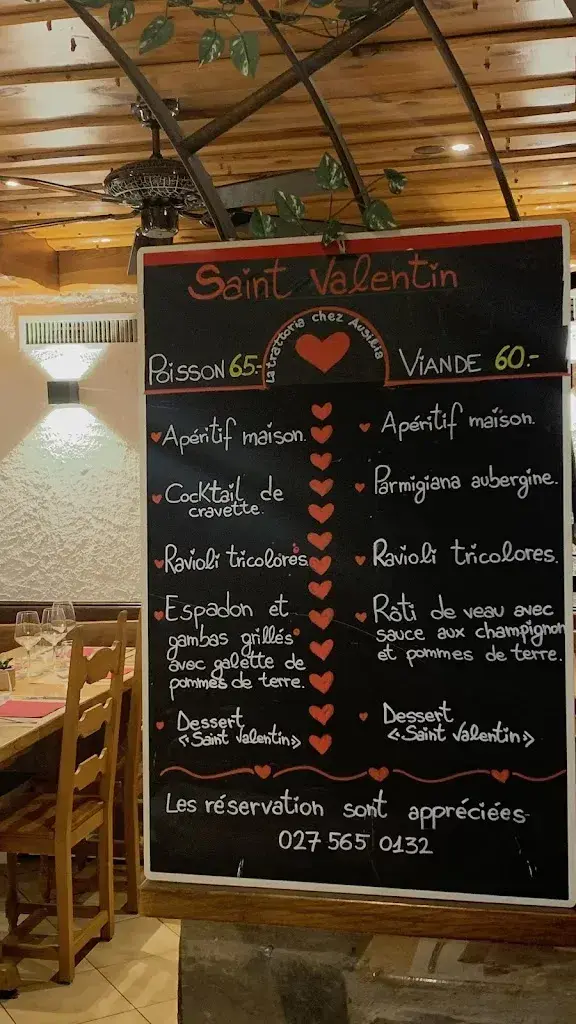 Saint Valentin
la trattoria chez Ausilia
Poisson 65.-
Viande 60.-
Apéritif maison.
Cocktail de
cravette.
Ravioli tricolores.
Espadon et
gambas grillés
avec galette de
pommes de terre.
Dessert
«Saint Valentin»
Apéritif maison.
Parmigiana aubergine.
Ravioli tricolores.
Rôti de veau avec
sauce aux champignon
et pommes de terre.
Dessert
«Saint Valentin»
Les réservation sont appréciées
027 565 0132